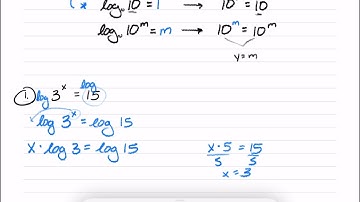 ( * log₁₀ 10 = 1 → 10¹ = 10
log₁₀ 10ᵐ = m → 10ᵐ = 10ᵐ
y = m
1. log 3ˣ = log 15
log 3ˣ = log 15
x · log 3 = log 15
x · 5 = 15
5 5
x = 3